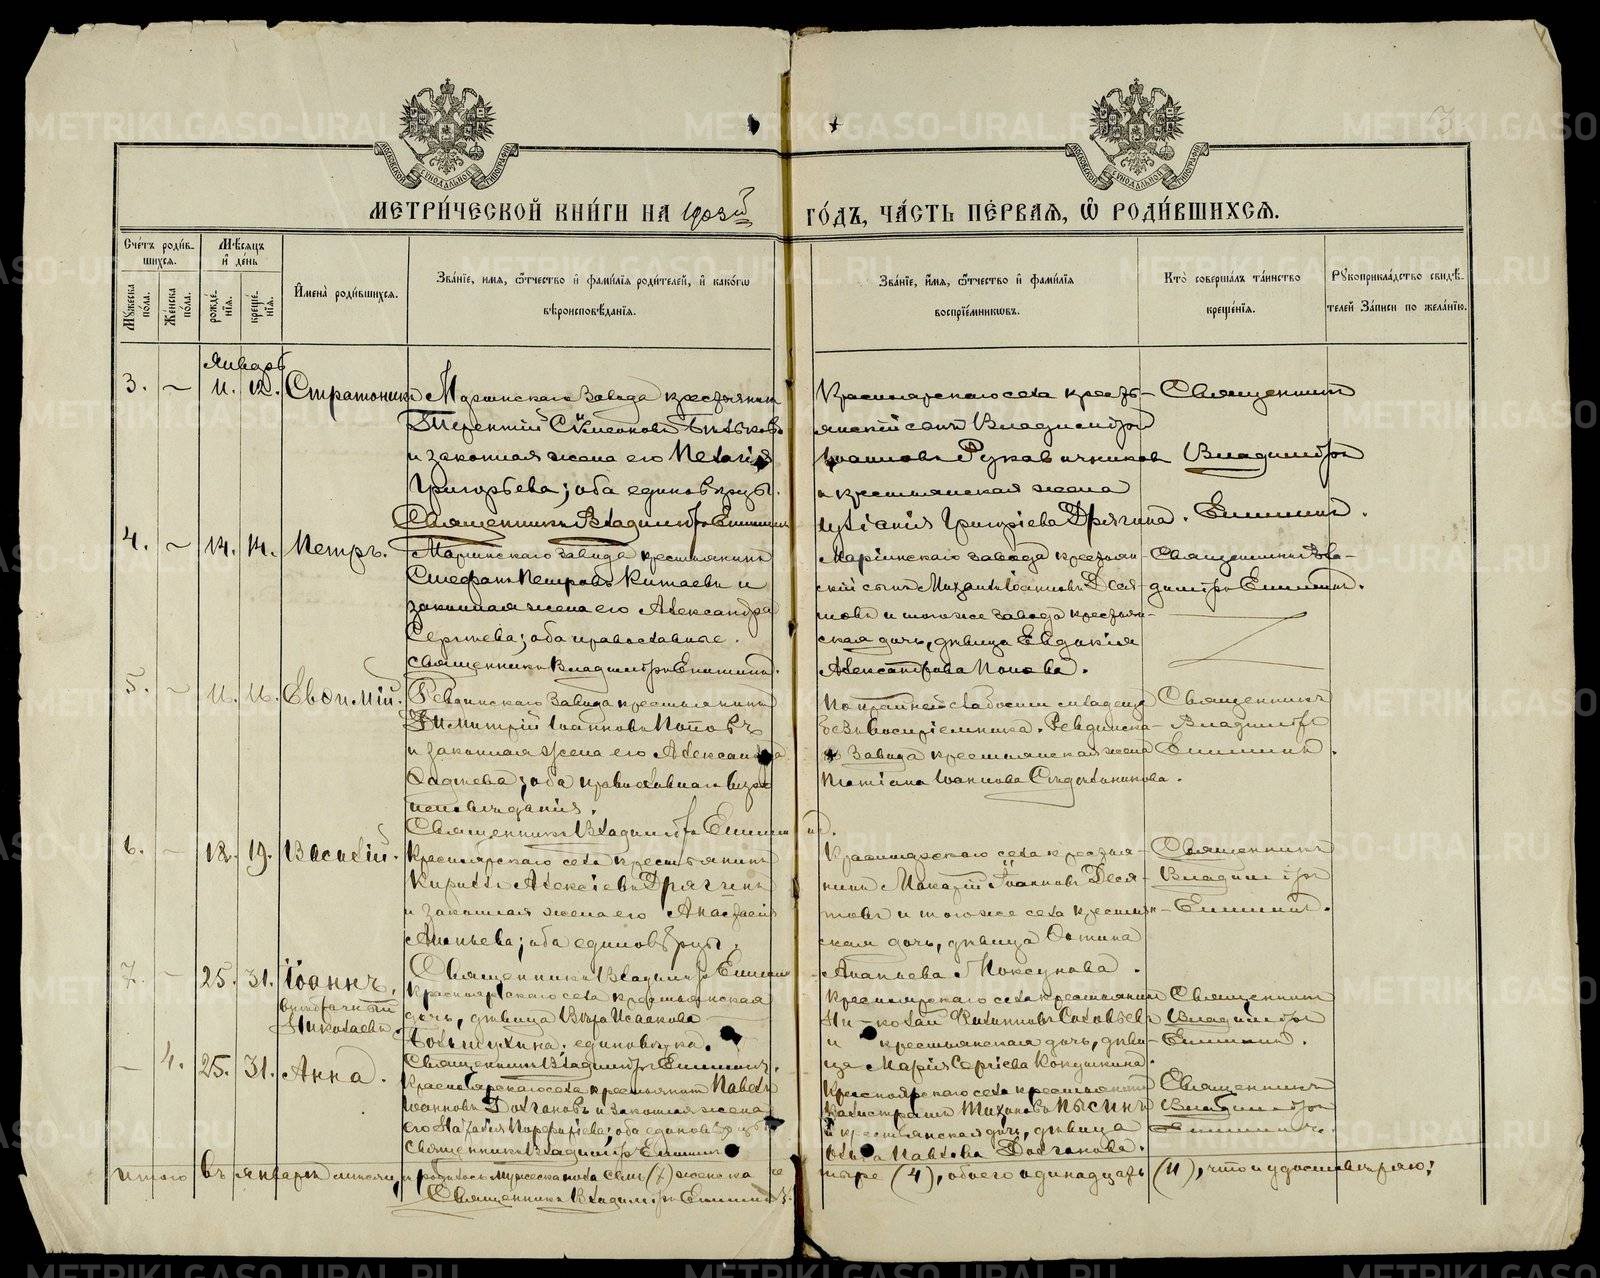 МЕТРИ́ЧЕСКОЙ КНИ́ГИ НА 1903й ГО́ДЪ, ЧА́СТЬ ПЕ́РВАЯ, Ѡ РОДИ́ВШИХСЯ.
Сче́тъ роди́вшихся.
Мꙋ́жеска по́ла.
Же́нска по́ла.
Мѣ́сяцъ и҆ де́нь
рожде́нїя.
креще́нїя.
И҆мена̀ роди́вшихся.
Зва́нїе, имя, ѻ҆́тчество и҆ фами́лїя роди́телей, и҆ како́гѡ вѣроисповѣ́данїя.
Зва́нїе, и҆́мя, ѻ҆́тчество и҆ фами́лїя воспрїе́мникѡвъ.
Кто̀ соверша́лъ та́инство креще́нїя.
Рꙋкоприкла́дство свидѣ́телей За́писи по жела́нїю.
Январь
3. – 11. 12. Стратоникъ
Маринскаго завода крестьянинъ
Терентій Симеоновъ
и законная жена его Пелагія
Григорьева; оба единовѣрцы.
Священникъ Владиміръ Епишинъ
Красноярскаго села кресть-
янскій сынъ Владиміръ
Іоанновъ Рукавичниковъ
и крестьянская жена
Григоріева Дрягина.
Священникъ
Владиміръ
Епишинъ.
4. – 14. 14. Петръ.
Маринскаго завода крестьянинъ
Стефанъ Петровъ Китаевъ и
законная жена его Александра
Сергіева; оба православные.
Священникъ Владиміръ Епишинъ.
Маріинскаго завода крестьян-
скій сынъ Михаилъ Іоанновъ Деся-
товъ и того же завода крестьян-
ская дочь, дѣвица Евдокія
Александрова Попова.
Священникъ Вла-
диміръ Епишинъ.
5. – 11. 16. Евѳимій.
Ревдинскаго завода крестьянинъ
Димитрій Іоанновъ Поповъ
и законная жена его Александра
оба православнаго
исповѣданія.
Священникъ Владиміръ Епишинъ.
По крайней слабости младенца
безъ воспріемника. Ревдинска-
го завода крестьянская жена
Татіана Іоаннова
Священникъ
Владиміръ
Епишинъ.
6. – 18. 19. Василій.
Красноярскаго села крестьянинъ
Кириллъ Алексіевъ Дрягинъ
и законная жена его Анастасія
Ананьева; оба единовѣрцы.
Священникъ Владиміръ Епишинъ
Красноярскаго села крестья-
нинъ Макарій Іоанновъ Деся-
товъ и того же села крестьян-
ская дочь, дѣвица
Ананьева Моксунова.
Священникъ
Владиміръ
Епишинъ.
7. – 25. 31. Іоаннъ,
внѣбрачный
Николаевъ.
Красноярскаго села крестьянская
дочь, дѣвица Вѣра Исаакова
единовѣрка.
Священникъ Владиміръ Епишинъ.
Красноярскаго села крестьянинъ
Николай Филипповъ Соловьевъ
и крестьянская дочь, дѣви-
ца Марія Сергіева Кондюкина.
Священникъ
Владиміръ
Епишинъ.
– 4. 25. 31. Анна.
Красноярскаго села крестьянинъ Павелъ
Іоанновъ Долгановъ и законная жена
его Наталія Порфиріева; оба единовѣрцы
Священникъ Владиміръ Епишинъ
Красноярскаго села крестьянинъ
Тихоновъ Пысинъ
и крестьянская дочь, дѣвица
Ольга Павлова Долганова.
Священникъ
Владиміръ
Епишинъ.
Итого въ январѣ мѣсяцѣ родилось мужеска пола семь (7) женска че
тыре (4), обоего одинадцать (11), что и удостовѣряю:
Священникъ Владиміръ Епишинъ.
METRIKI.GASO-URAL.RU